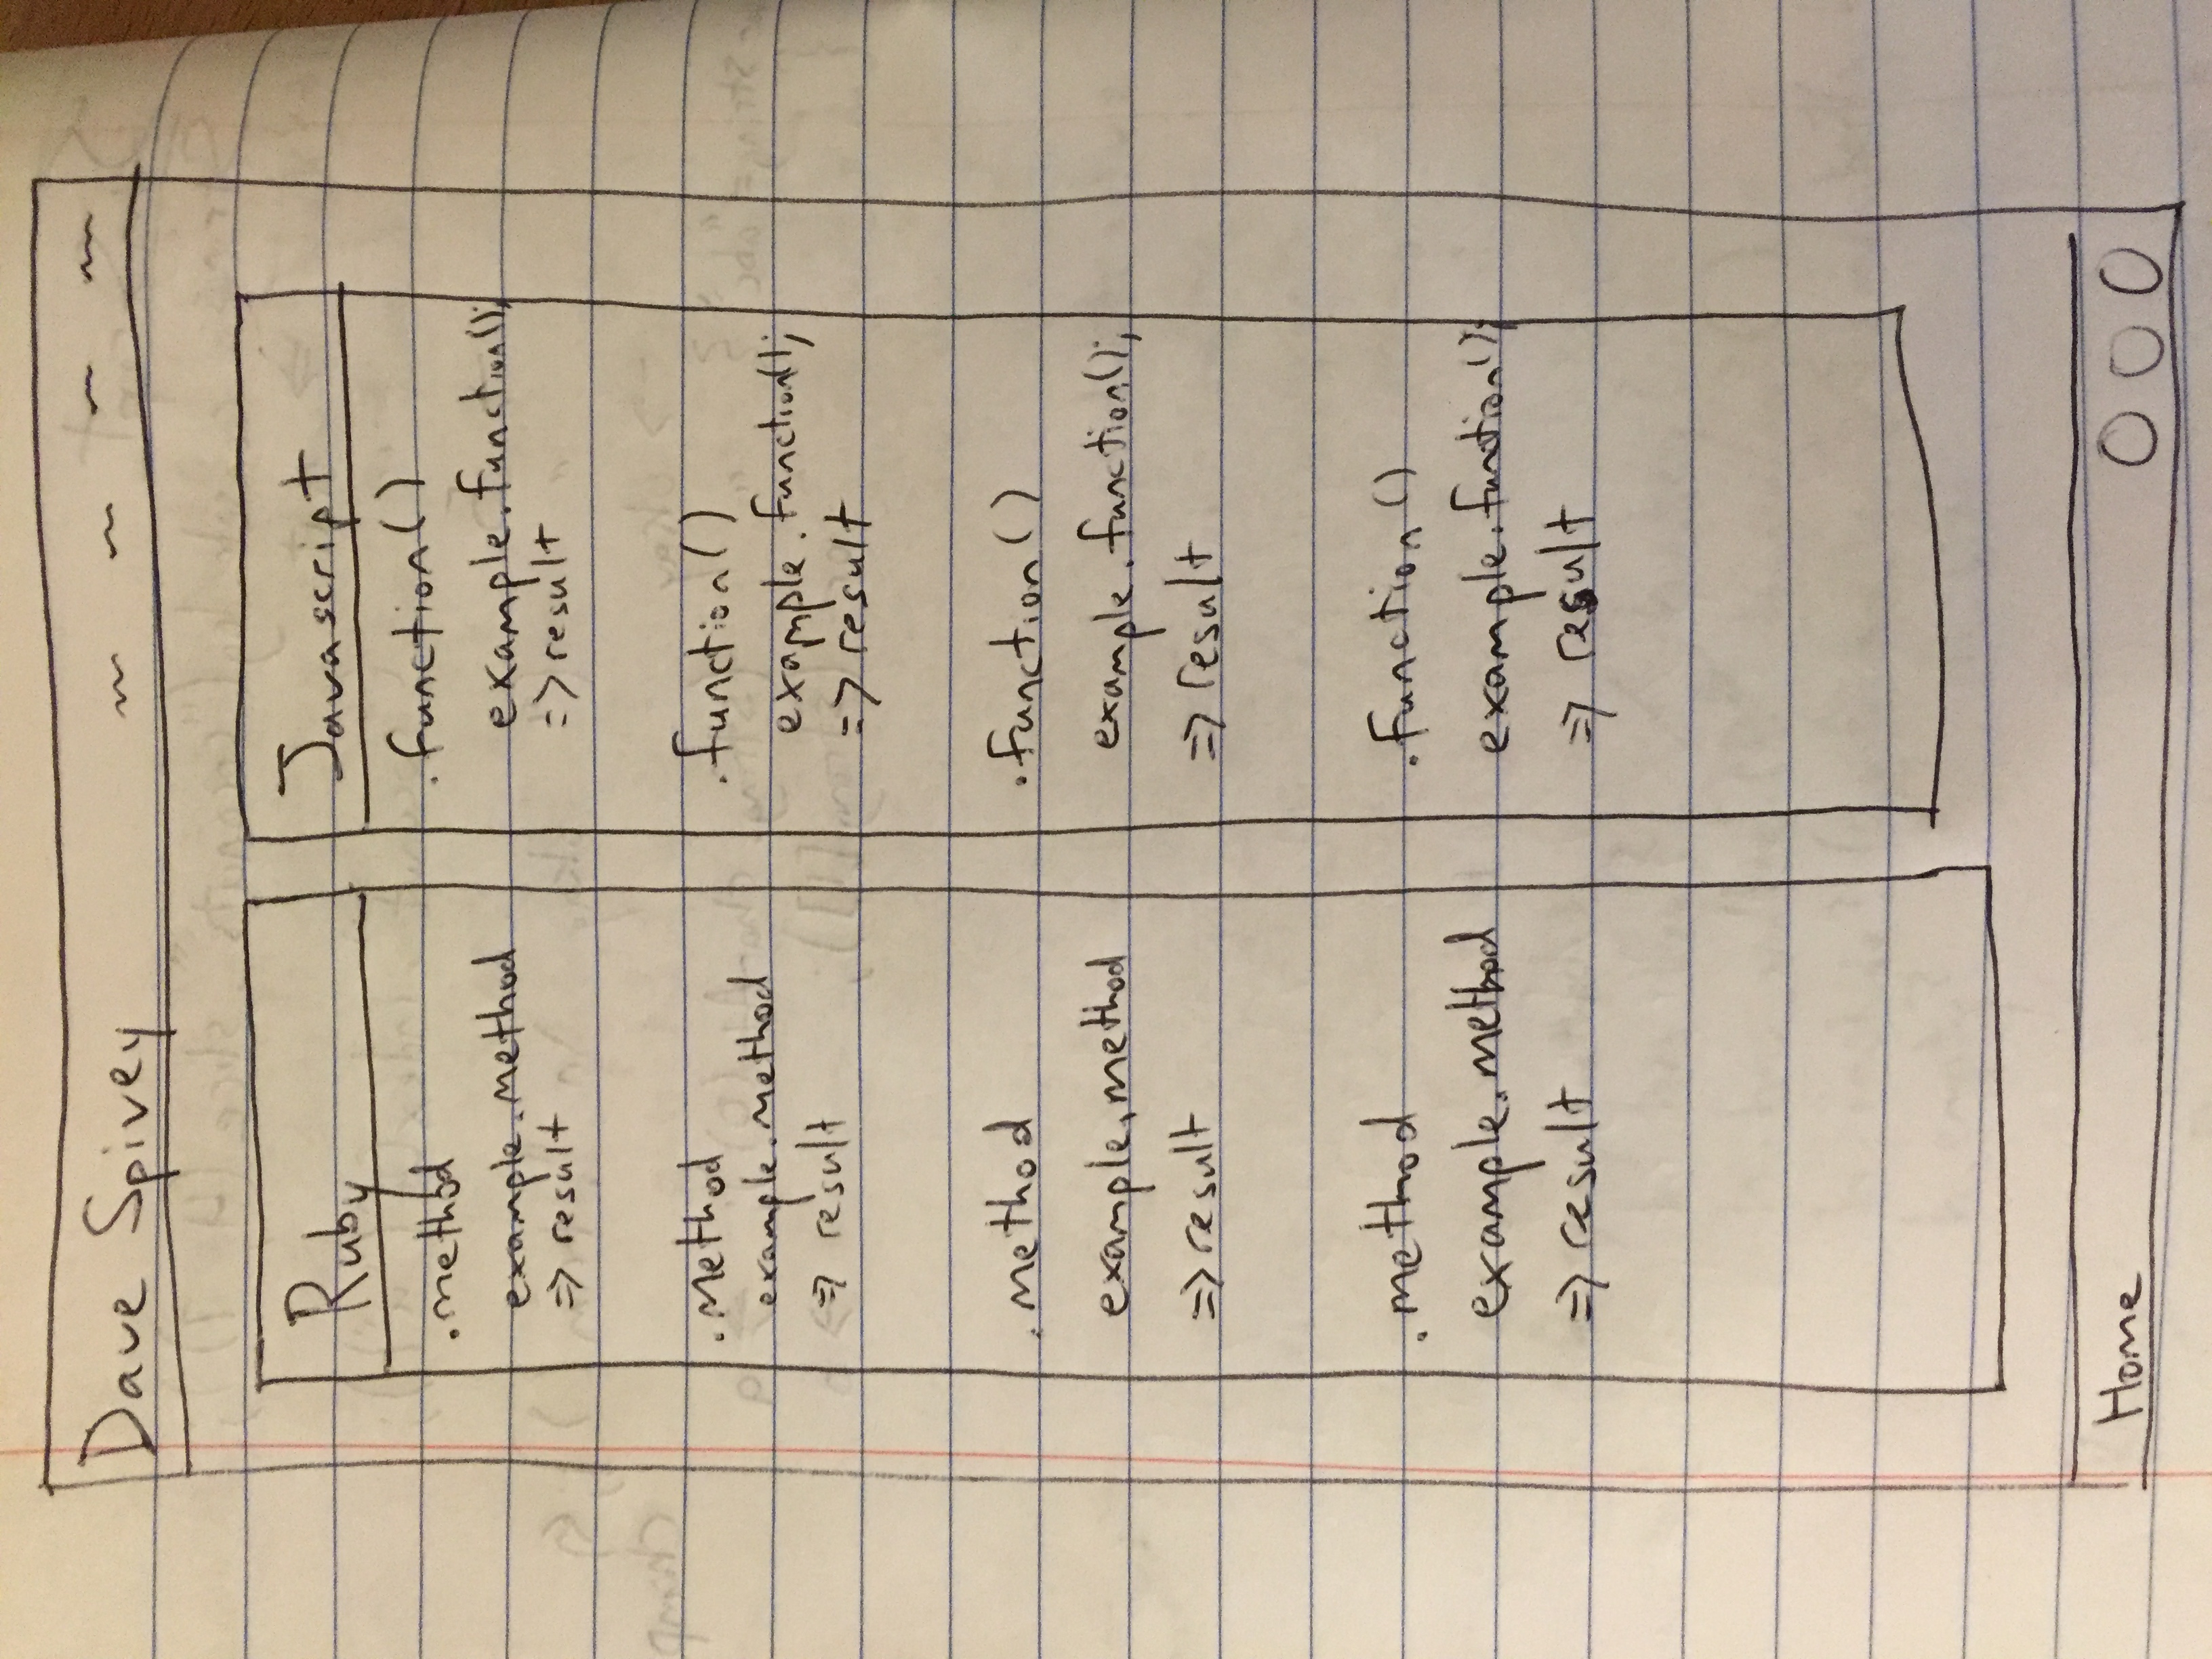 Dave Spivey
Ruby
.method
example.method
=> result
.method
example.method
=> result
.method
example.method
=> result
.method
example.method
=> result
Javascript
.function()
example.function();
=> result
.function()
example.function();
=> result
.function()
example.function();
=> result
.function()
example.function();
=> result
Home